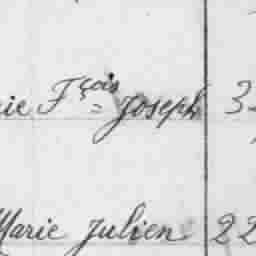 ie Fçois = Joseph 3
Marie Julien 22